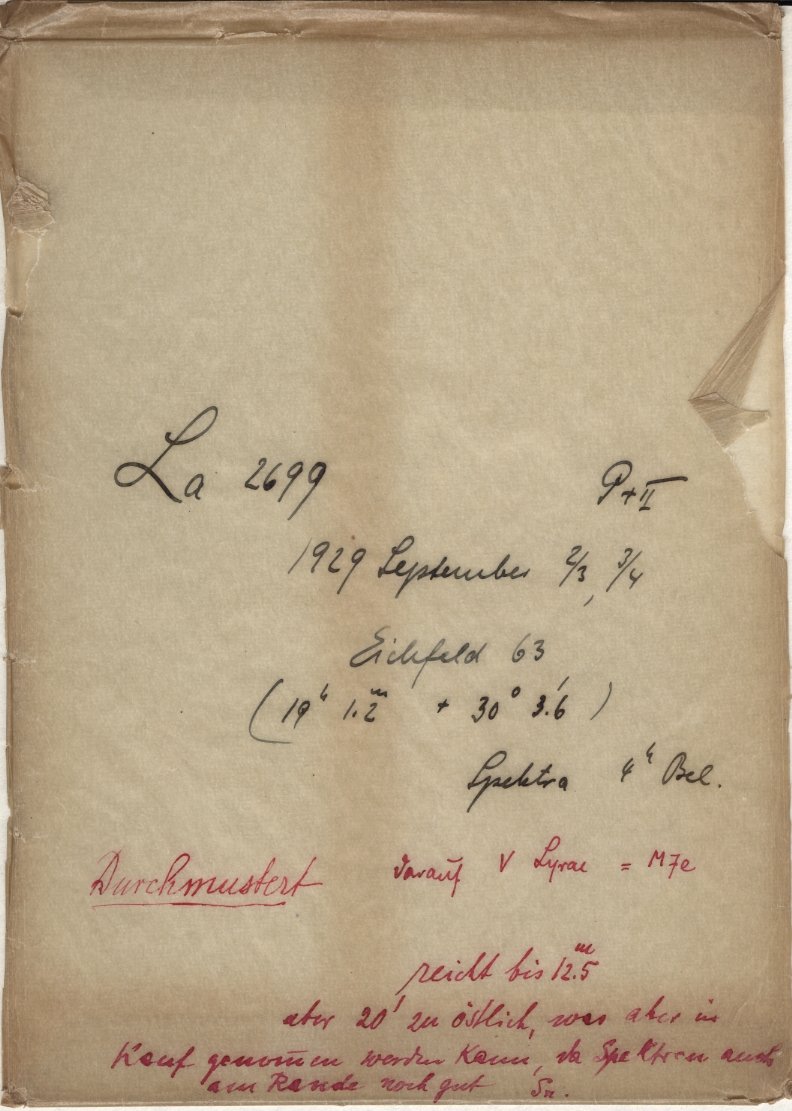 La 2699 P + II
1929 September 2/3, 3/4
Eichfeld 63
(19ʰ 1.2ᵐ + 30° 3.'6)
Spektra 4ʰ Bel.
Durchmustert darauf V Lyrae = M7e
reicht bis 12.5ᵐ
aber 20' zu östlich, was aber in
Kauf genom̄en werden kann, da Spektren auch
am Rande noch gut Sn.